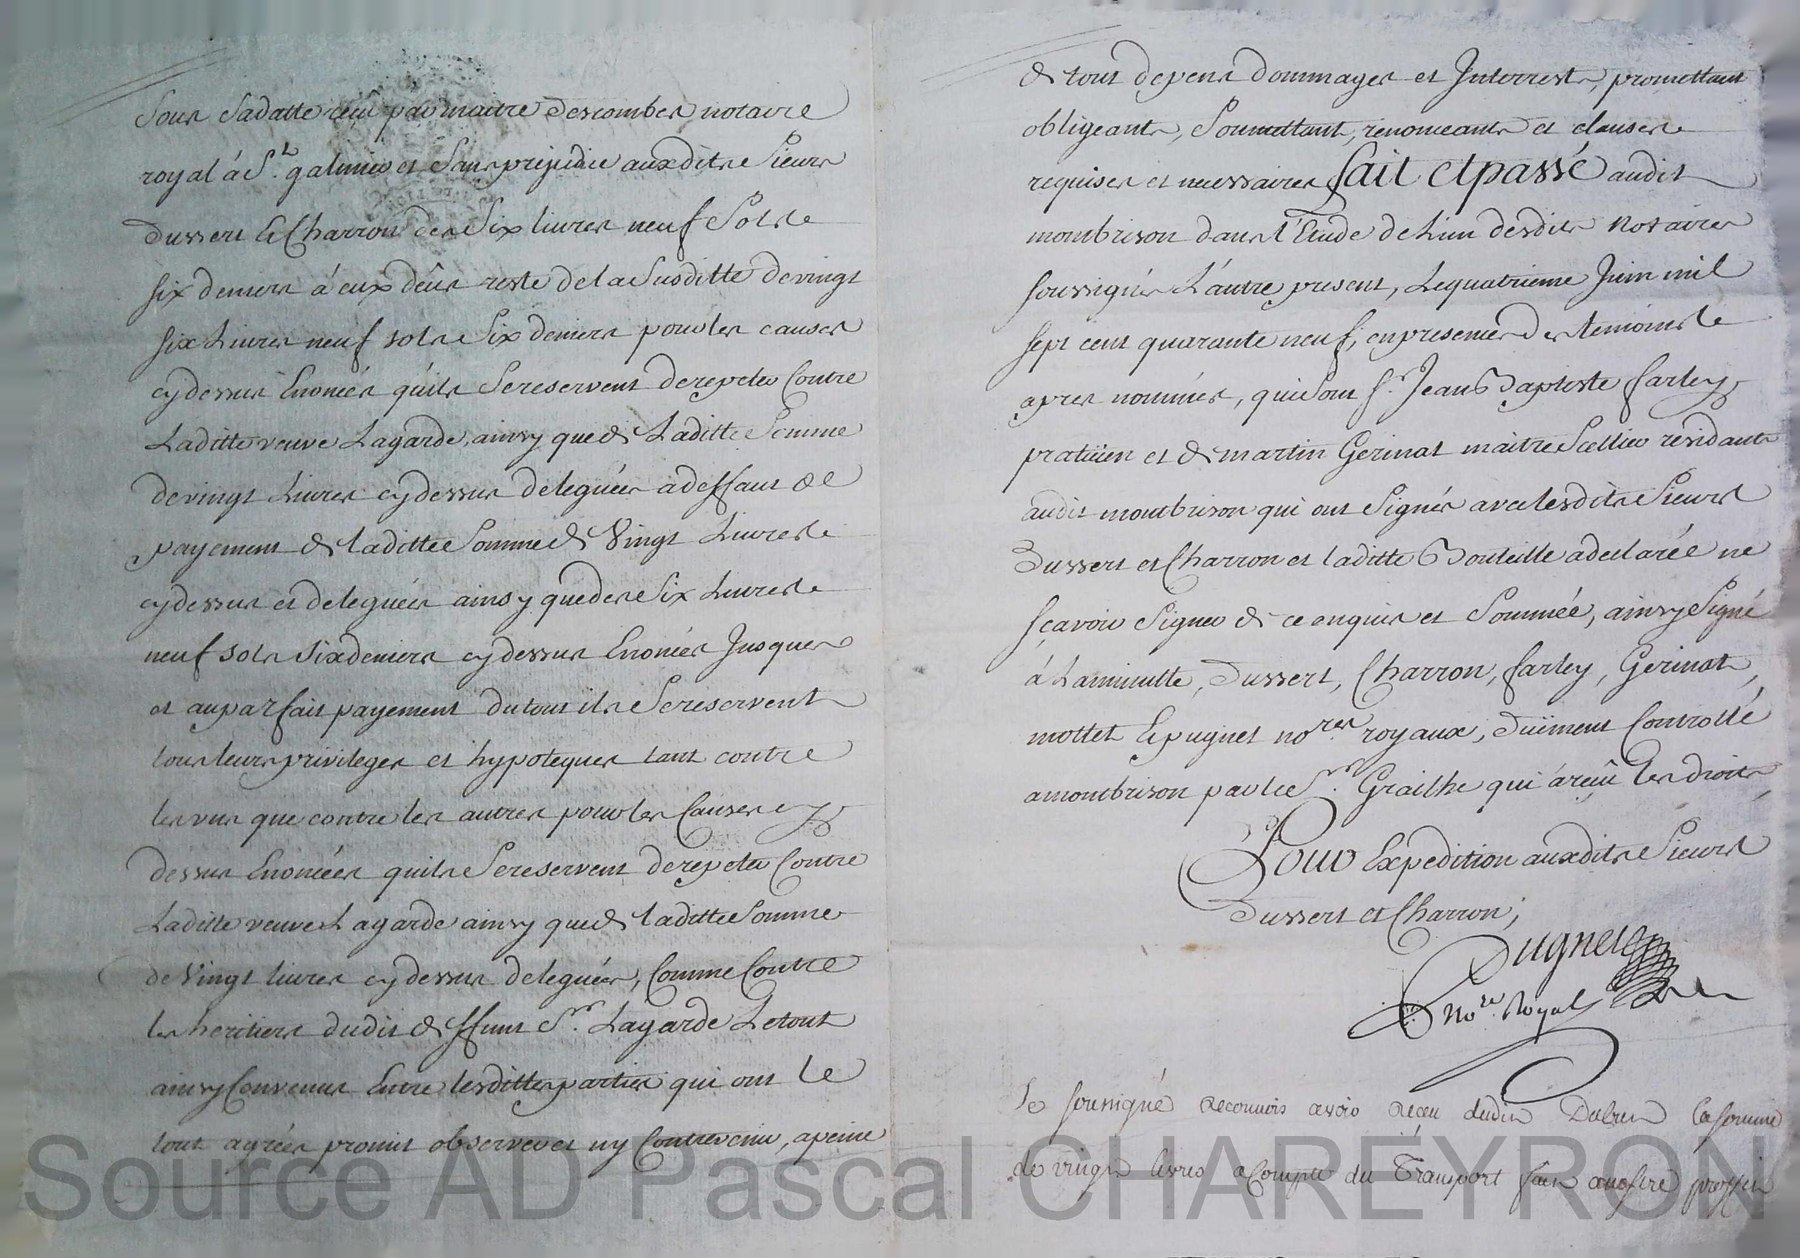 Sous Sadatte reçu par maitre Descombes notaire
royal á St. galmier et Sans prejudice auxdits Sieurs
Dussert et Charron des Six livres neuf Sols
six deniers á eux dûs reste de la Susditte de vingt
six Livres neuf sols Six deniers pour les causes
cy dessus Enoncées qu'ils Se reservent de repeter Contre
Laditte veuve Lagarde, ainsy que de Laditte Somme
de vingt Livres cy dessus deleguées a deffaut de
payement de laditte Somme de Vingt Livres
cy dessus et deleguées ainsy que des Six Livres
neuf sols Six deniers cy dessus Enoncées Jusques
et au parfait payement du tout ils Se reservent
tous leurs privileges et hypoteques tant contre
les uns que contre les autres pour les Causes cy
dessus Enoncées quils Se reservent de repeter Contre
Laditte veuve Lagarde ainsy que de laditte Somme
de Vingt livres cy dessus deleguées, Comme Contre
les heritiers dudit deffunt Sr. Lagarde Le tout
ainsy Convenus Entre lesdittes parties qui ont le
tout agréés promit observer et ny Contrevenir, a peine
de tout depens dommages et Interrests, promettant
obligeants, Soumettant, renonceants et clauses
requises et necessaires fait et passé audit
montbrison dans l'Etude de L'un desdits Notaires
soussignés L'autre present, Le quatrieme Juin mil
sept cent quarante neuf, en presence des temoins
apres nommés, qui Sont Sr. Jean Baptiste farley
pratiçien et de martin Gerinat maitre Scellier residants
audit montbrison qui ont Signés avec lesdits Sieurs
Dussert et Charron et laditte Bouteille a declarée ne
sçavoir Signer de ce enquis et Sommée, ainsy Signé
á La minutte, Dussert, Charron, farley, Gerinat,
mottet et pugnet nores. royaux, Duëment Controllé
a montbrison par le Sr. Grailhe qui á reçu les droits
Pour Expedition auxdits Sieurs
Dussert et Charron;
Pugnet
No.re Royal
Je soussigné Reconnois avoir Receu dudit la somme
de vingt livres a Compte du Transport fait
Source AD Pascal CHAREYRON